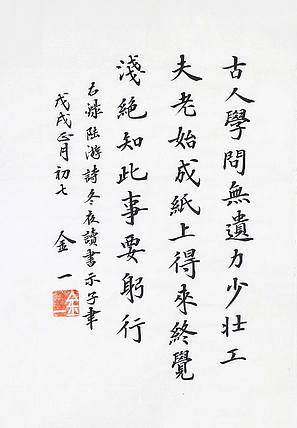 古人學問無遺力少壯工
夫老始成紙上得來終覺
淺絕知此事要躬行
右錄陸游詩冬夜讀書示子聿
戊戌正月初七 金一
金一